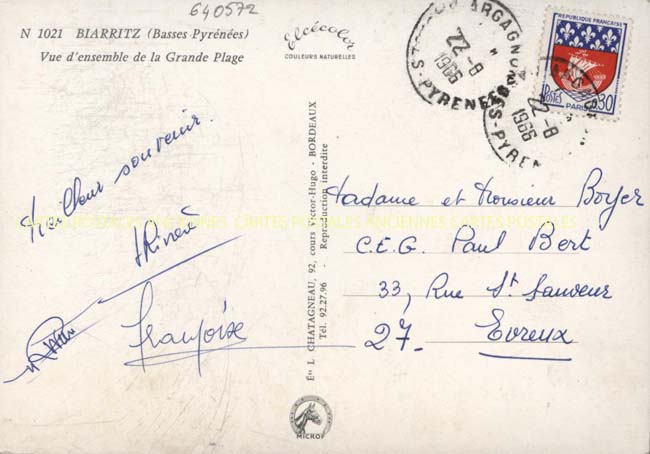 640572
N 1021 BIARRITZ (Basses-Pyrénées)
Vue d'ensemble de la Grande Plage
Elcécolor
COULEURS NATURELLES
ARGAGNON
22-8
1966
PYRENEES
22-8
1966
REPUBLIQUE FRANÇAISE
POSTES
PARIS
0,30
Meilleur souvenir.
Françoise
Ets L. CHATAGNEAU, 92, cours Victor-Hugo - BORDEAUX
Tél. 92.27.96 - Reproduction interdite
Madame et Monsieur Boyer
C.E.G. Paul Bert
33, Rue St Sauveur
27. Evreux
CARTES POSTALES ANCIENNES CARTES POSTALES
MICROF